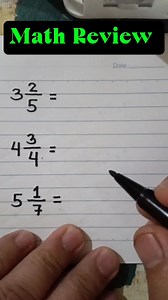 Math Review
Date
3 2/5 =
4 3/4 =
5 1/7 =